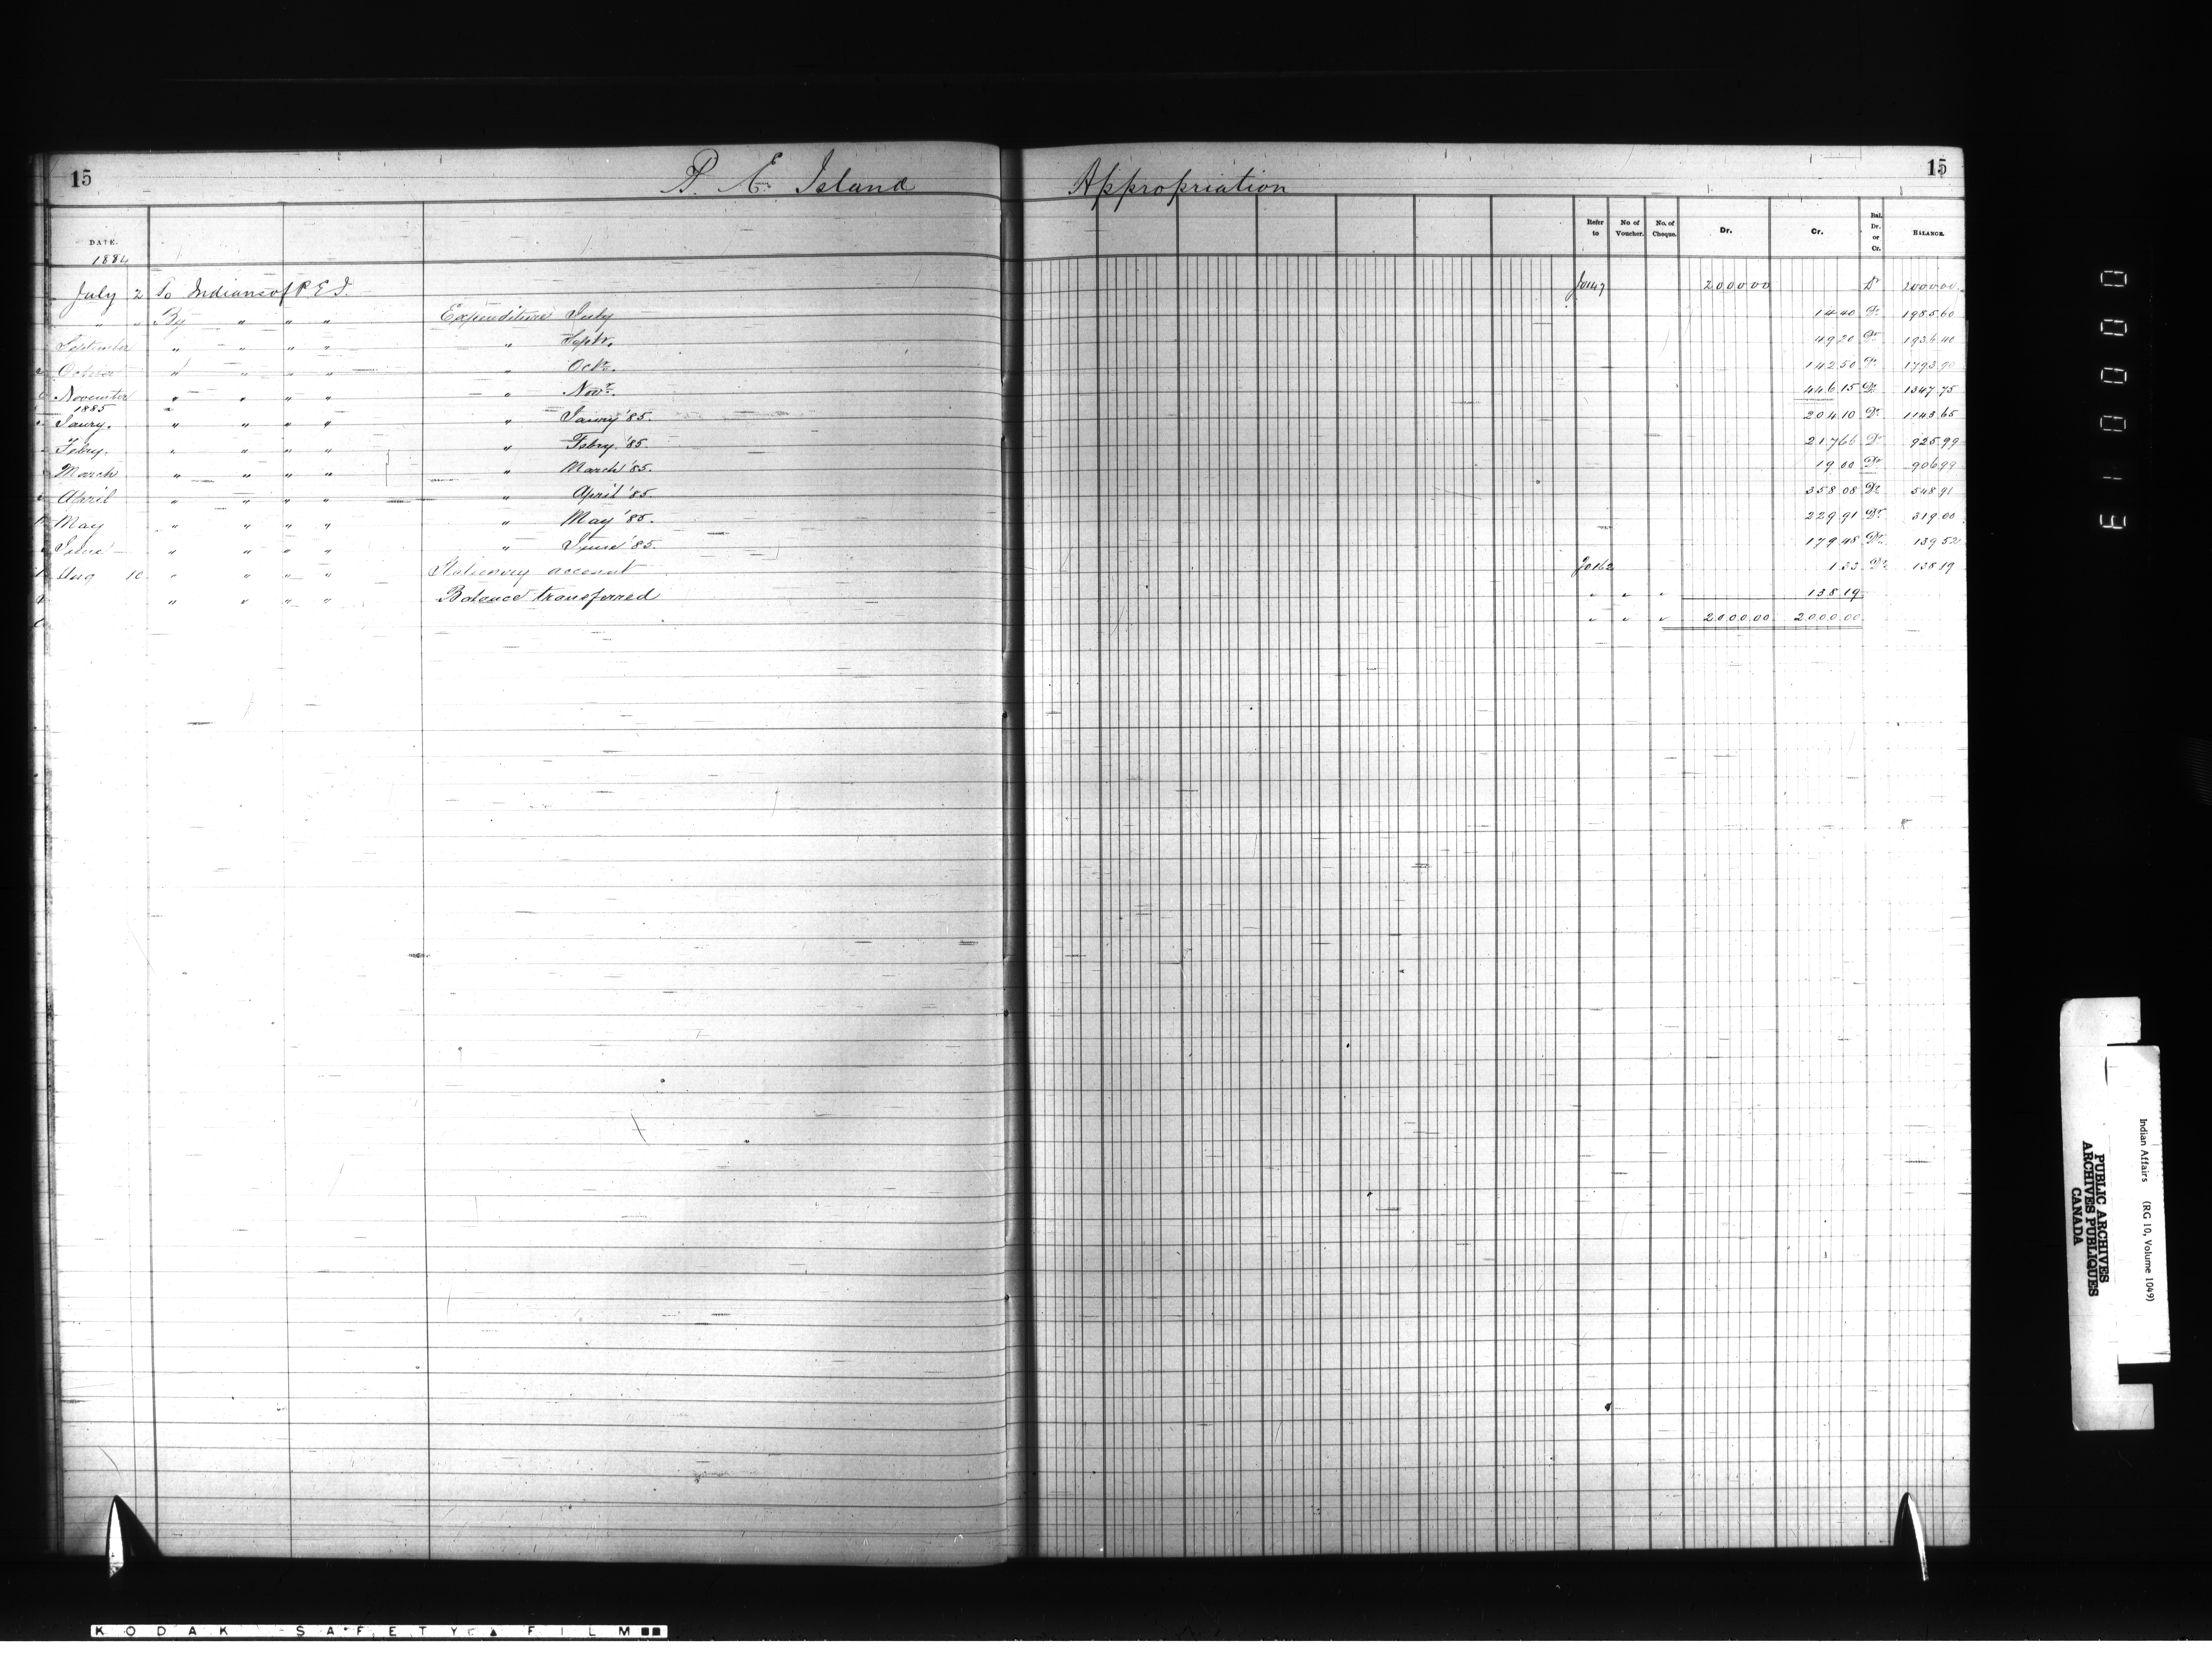 15 P. E. Island Appropriation 15
DATE. Refer to No of Voucher. No. of Cheque. Dr. Cr. Bal. Dr. or Cr. BALANCE.
1884
July 2 To Indians of P E I. Jo147 2000 00 Dr 2000 00
" " By " " " Expenditure July 14 40 Dr 1985 60
September " " " " " Septr. 49 20 Dr 1936 40
October " " " " " Octr. 142 50 Dr 1793 90
November " " " " " Novr. 446 15 Dr 1347 75
1885
Janry. " " " " " Janry '85. 204 10 Dr 1143 65
Febry. " " " " " Febry '85. 217 66 Dr 925 99
March " " " " " March '85. 19 00 Dr 906 99
April " " " " " April '85. 358 08 Dr 548 91
May " " " " " May '85. 229 91 Dr 319 00
June " " " " " June '85. 179 48 Dr 139 52
Aug 10 " " " " Stationery account Jo162 1 33 Dr 138 19
" " " " Balance transferred " " " 138 19
" " " 2000 00 2000 00
KODAK SAFETY FILM
Indian Affairs (RG 10, Volume 1049)
PUBLIC ARCHIVES
ARCHIVES PUBLIQUES
CANADA